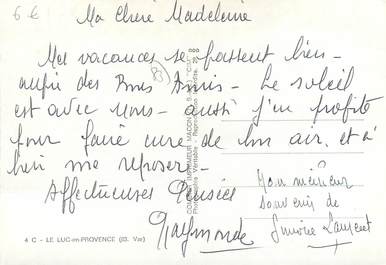 6 €
Ma Chère Madeleine
Mes vacances se passent bien -
auprès des Bons Amis - Le soleil
est avec nous - aussi j'en profite
pour faire cure de bon air, et à
bien me reposer -
Affectueuses Pensées
Raymonde
Mon meilleur
souvenir de
Laurent
4 C - LE LUC-en-PROVENCE (83. Var)